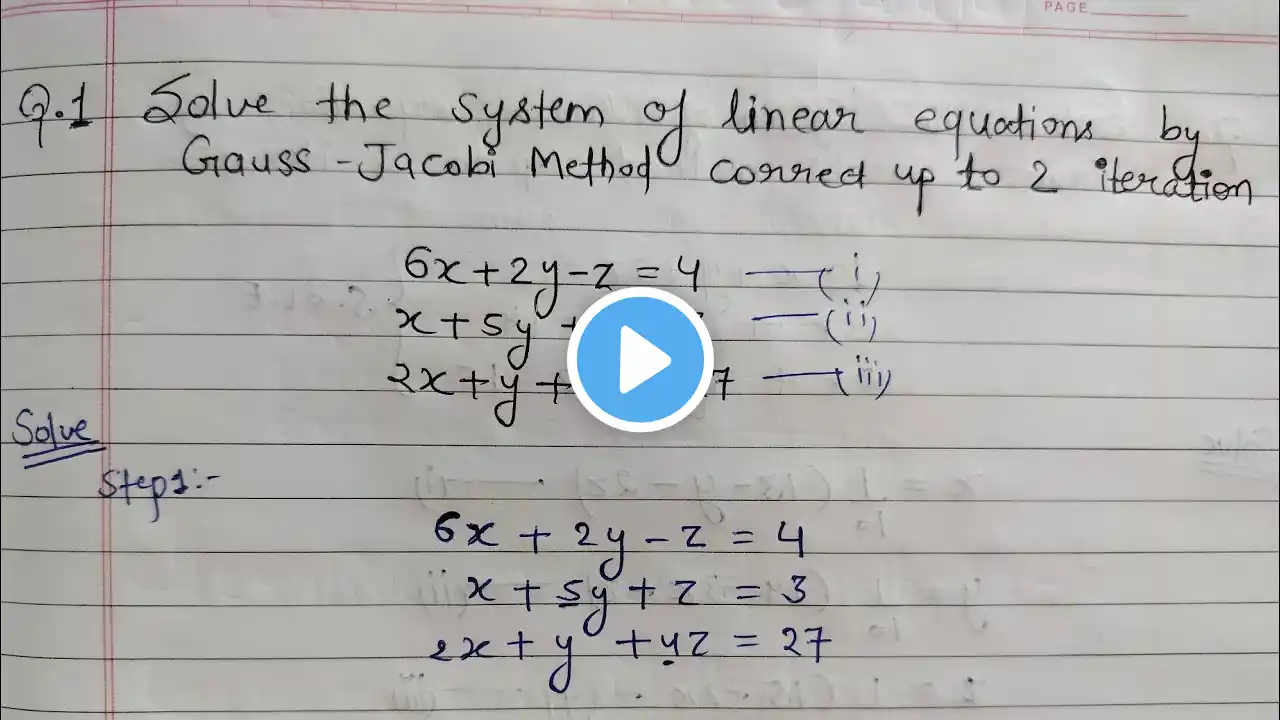 PAGE
Q.1 Solve the system of linear equations by
Gauss-Jacobi Method correct up to 2 iteration
6x + 2y - z = 4 —(i)
x + 5y + —(ii)
2x + y + 7 —(iii)
Solve
Step1:-
6x + 2y - z = 4
x + 5y + z = 3
2x + y + 4z = 27